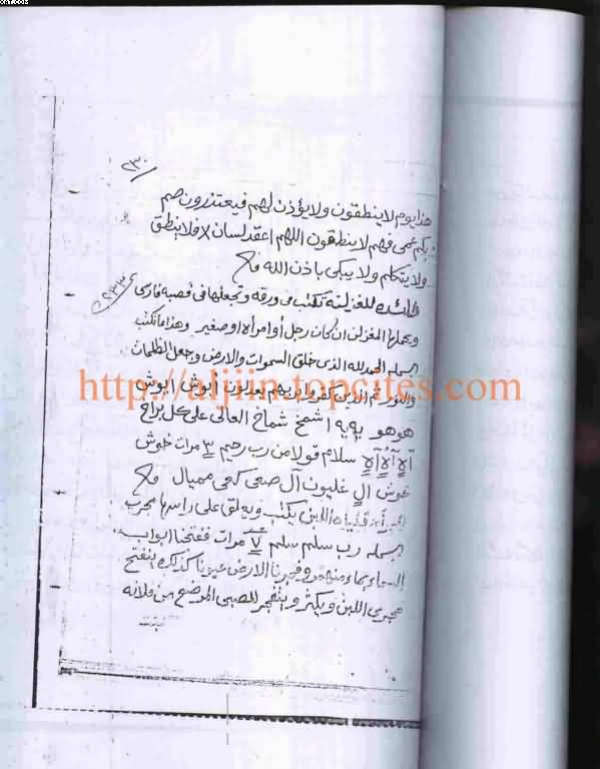 ٢٣٠
هذا يوم لا ينطقون ولا يؤذن لهم فيعتذرون صم
بكم عمى فهم لا ينطقون اللهم اعقد لسان فلا ينطق
ولا يتكلم ولا يبكى باذن الله
للغزلنه تكتب فى ورقه وتجعلها فى قصبه فارسى
٢٣٣
المغزلن ان كان رجل أو امرأه او صغير وهذا ما تكتب
البسمله الحمد لله الذى خلق السموات والارض وجعل الظلمات
والنور ثم الذين كفروا بربهم يعدلون ابوش ابوش
http://aljiin.topcites.com
هو هو يه يه اشمخ شماخ العالى على كل براخ
سلام قولا من رب رحيم ٣ مرات خوش
خوش ال غليون آل صعى كعى مميال
اللبن يكتب ويعلق على راسها مجرب
البسمله رب سليم سلم ٧ مرات ففتحنا ابواب
السماء بماء منهمر وفجرنا الارض عيونا كذلك ينفتح
مجرى اللبن ويكثر وينفجر للصبى المرضع من فلانه